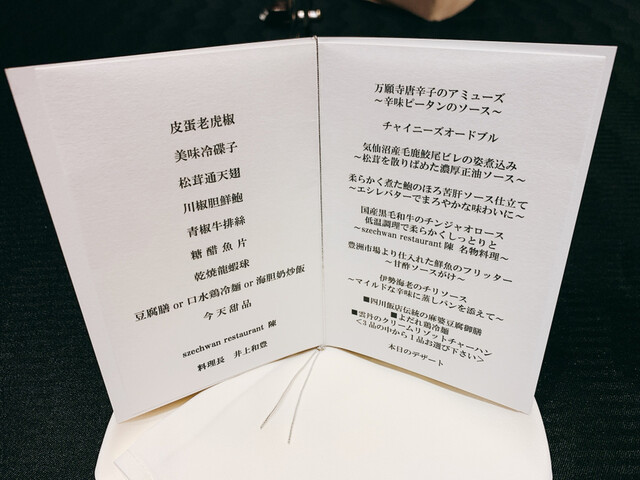 皮蛋老虎椒
美味冷碟子
松茸通天翅
川椒胆鮮鮑
青椒牛排絲
糖醋魚片
乾焼龍蝦球
豆腐膳 or 口水鶏冷麺 or 海胆奶炒飯
今天甜品
szechwan restaurant 陳
料理長 井上和豊
万願寺唐辛子のアミューズ
～辛味ピータンのソース～
チャイニーズオードブル
気仙沼産毛鹿鮫尾ビレの姿煮込み
～松茸を散りばめた濃厚正油ソース～
柔らかく煮た鮑のほろ苦肝ソース仕立て
～エシレバターでまろやかな味わいに～
国産黒毛和牛のチンジャオロース
低温調理で柔らかくしっとりと
～szechwan restaurant 陳 名物料理～
豊洲市場より仕入れた鮮魚のフリッター
～甘酢ソースがけ～
伊勢海老のチリソース
～マイルドな辛味に蒸しパンを添えて～
■四川飯店伝統の麻婆豆腐御膳
■よだれ鶏冷麺
■雲丹のクリームリゾットチャーハン
<3品の中から1品お選び下さい>
本日のデザート